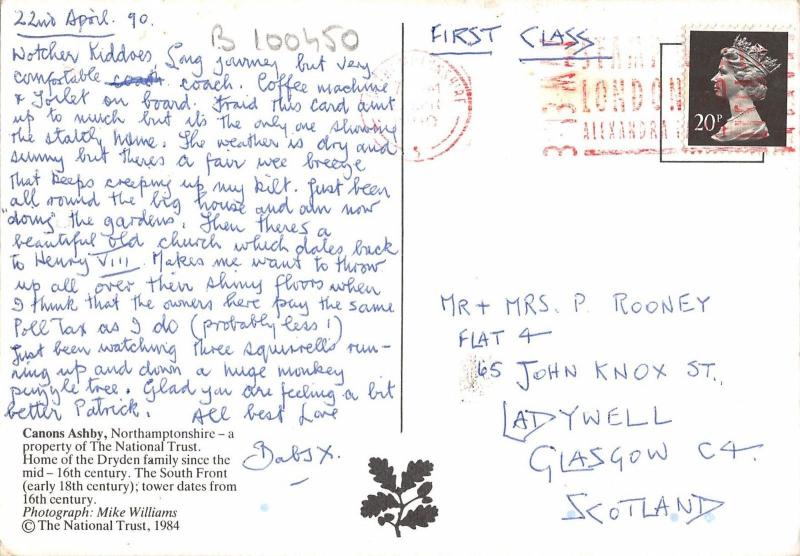 22nd April. 90.
B 100450
Wotcher Kiddoes, Long journey but very
comfotable coach. coach. Coffee machine
+ Toilet on board. 'fraid this card aint
up to much but its the only one showing
the staitly home. The weather is dry and
sunny but theres a fair wee breeze
that keeps creeping up my kilt. Just been
all round the big house and am now
"doing" the gardens. Then theres a
beautiful old church which dates back
to Henry VIII. Makes me want to throw
up all over their shiny floors when
I think that the owners here pay the same
Poll Tax as I do (probably less!)
Just been watching three squirrells run-
ning up and down a huge monkey
puzzle tree. Glad you are feeling a bit
better Patrick. All best Love
Babs X.
Canons Ashby, Northamptonshire – a
property of The National Trust.
Home of the Dryden family since the
mid – 16th century. The South Front
(early 18th century); tower dates from
16th century.
Photograph: Mike Williams
© The National Trust, 1984
FIRST CLASS
LONDON
ALEXANDRA
20P
MR + MRS. P. ROONEY
FLAT 4
65 JOHN KNOX ST.,
LADYWELL
GLASGOW C4.
SCOTLAND